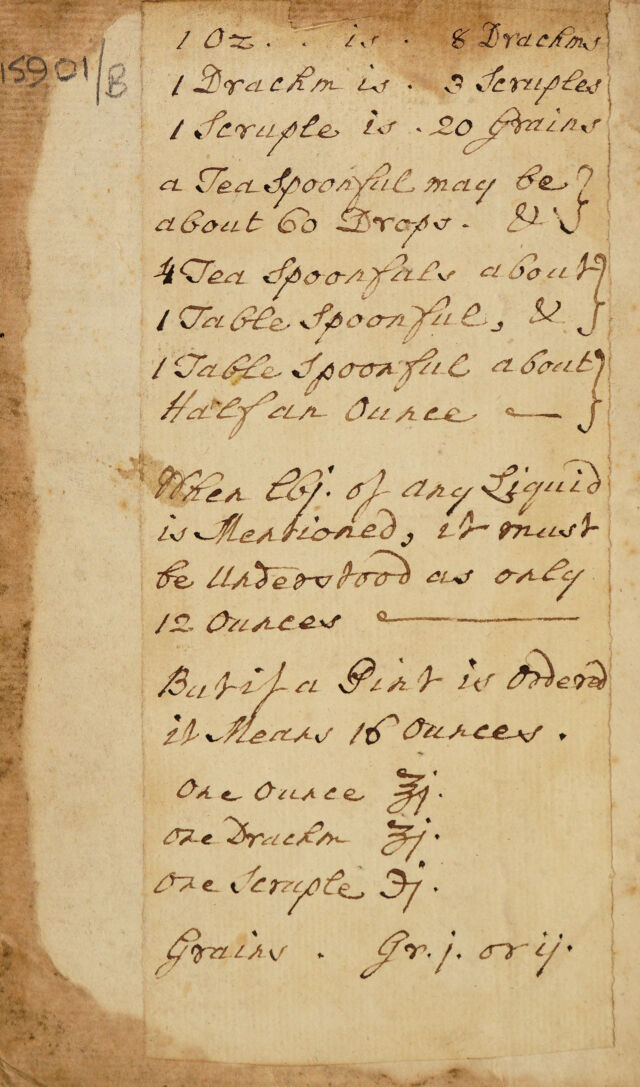 15901/B
1 Oz. . is . 8 Drachms
1 Drachm is . 3 Scruples
1 Scruple is . 20 Grains
a Tea Spoonful may be }
about 60 Drops. & }
4 Tea Spoonfuls about }
1 Table Spoonful, & }
1 Table Spoonful about }
Half an Ounce — }
When lbj. of any Liquid
is Mentioned, it must
be Understood as only
12 Ounces ———
But if a Pint is Ordered
it Means 16 Ounces.
One Ounce ℥j.
one Drachm ʒj.
one Scruple ℈j.
Grains . Gr. j. or ij.